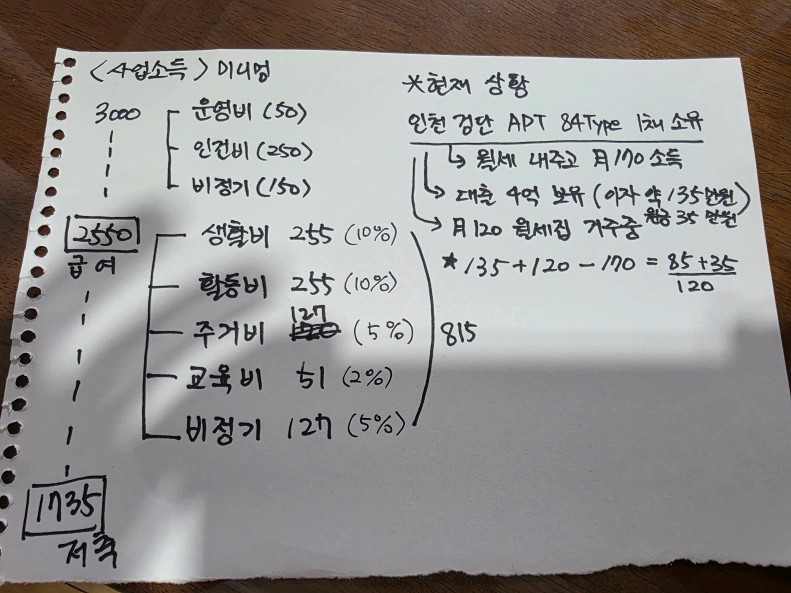 <사업소득> 미니멈
3000
운영비 (50)
인건비 (250)
비정기 (150)
2550
급여
생활비 255 (10%)
활동비 255 (10%)
주거비 127 (5%)
교육비 51 (2%)
비정기 127 (5%)
815
1735
저축
*현재 상황
인천 검단 APT 84Type 1채 소유
↳ 월세 내주고 月170 소득
↳ 대출 4억 보유 (이자 약 135만원)
원금 35 만원
↳ 月120 월세집 거주중
★ 135+120-170 = 85+35
120